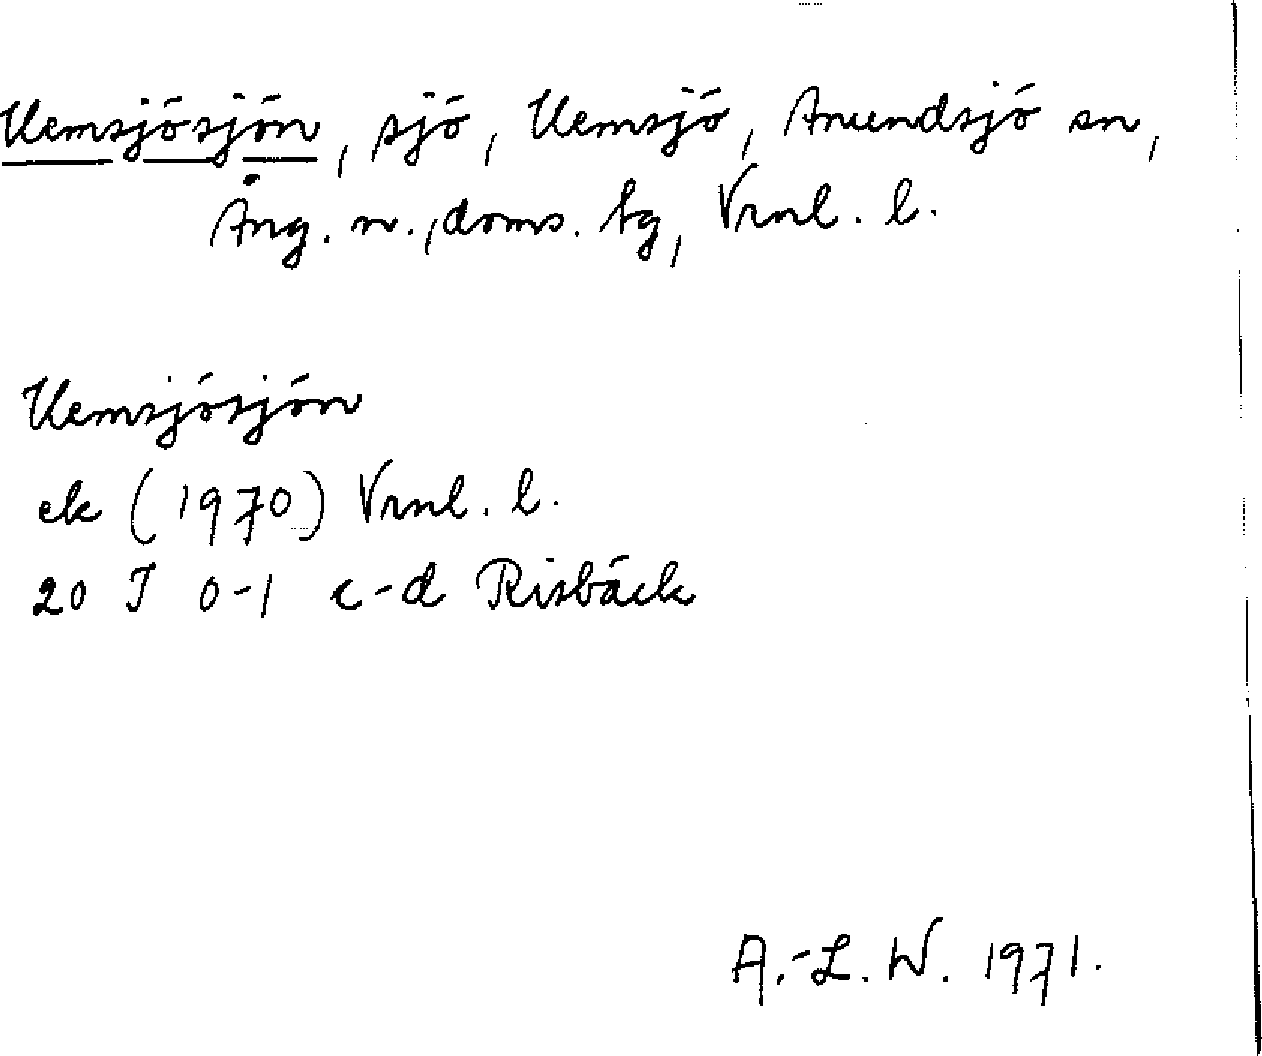 Kemsjösjön, sjö, Kemsjö, Anundsjö sn,
Äng. n., doms. bg, Vrnl. l.
Kemsjösjön
ek (1970) Vrnl. l.
20 I 0-1 c-d Risbäck
A.-L. W. 1971.